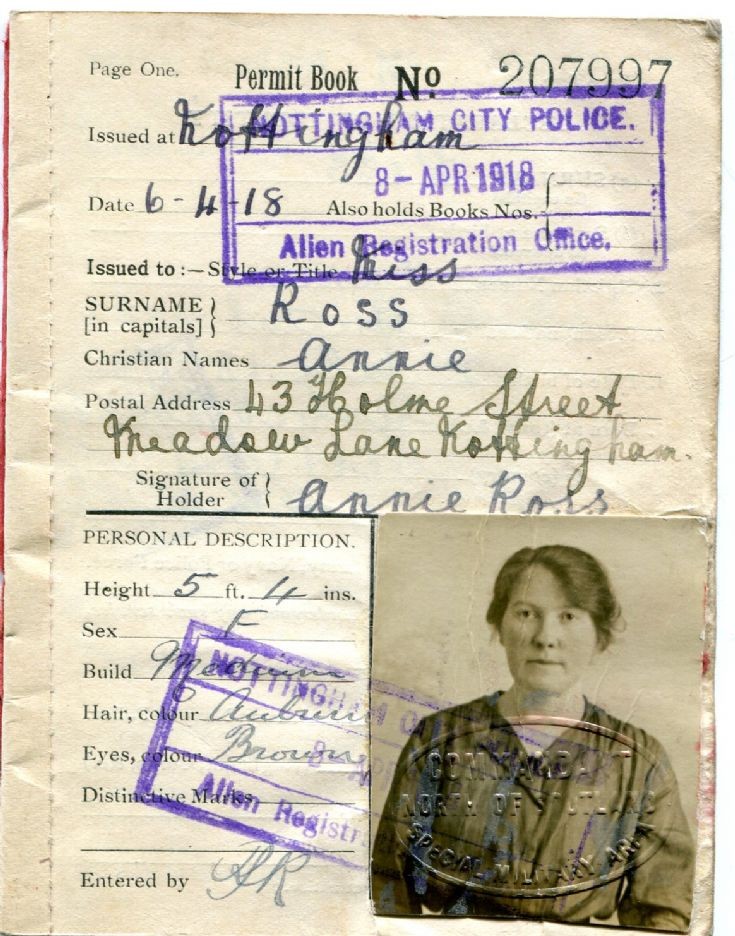 Page One. Permit Book No 207997
NOTTINGHAM CITY POLICE.
Issued at Nottingham
8-APR 1918
Date 6-4-18 Also holds Books Nos.
Alien Registration Office.
Issued to:—Style or Title Miss
SURNAME [in capitals] Ross
Christian Names Annie
Postal Address 43 Holme Street
Meadow Lane Nottingham.
Signature of Holder Annie Ross
PERSONAL DESCRIPTION.
Height 5 ft. 4 ins.
Sex F
Build Medium
NOTTINGHAM C
Hair, colour Auburn
Eyes, colour Brown
8-AP
Distinctive Marks
Alien Registr
Entered by
COMMANDANT
NORTH OF SCOTLAND
SPECIAL MILITARY AREA